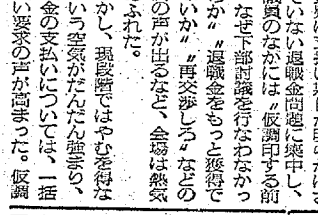 ていない退職金問題に集中し、
議員のなかには〃仮調印する前
になぜ下部討議を行なわなかっ
たか〃〃退職金をもっと獲得で
ないか〃〃再交渉しろ〃などの
の声が出るなど、会場は熱気
ふれた。
かし、現段階ではやむを得な
いう空気がだんだん強まり、
金の支払いについては、一括
い要求の声が高まった。仮調